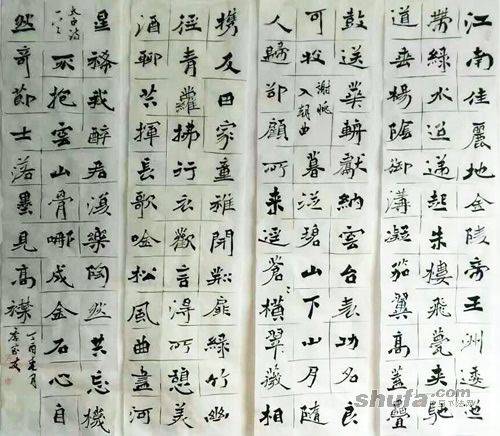 江南佳麗地金陵帝王洲逶迤
帶綠水迢遞起朱樓飛甍夾馳
道垂楊蔭御溝凝笳翼高蓋疊
鼓送華輈獻納雲台表功名良
可收謝朓入朝曲暮從碧山下山月隨
人歸卻顧所來逕蒼〻橫翠微相
携及田家童稚開荊扉綠竹幽
徑青蘿拂行衣歡言得所憩美
酒聊共揮長歌吟松風曲盡河
星稀我醉君復樂陶然共忘機
太白詩不抱雲山骨哪成金石心自
然奇節士落墨見高襟丁酉
shufa.com